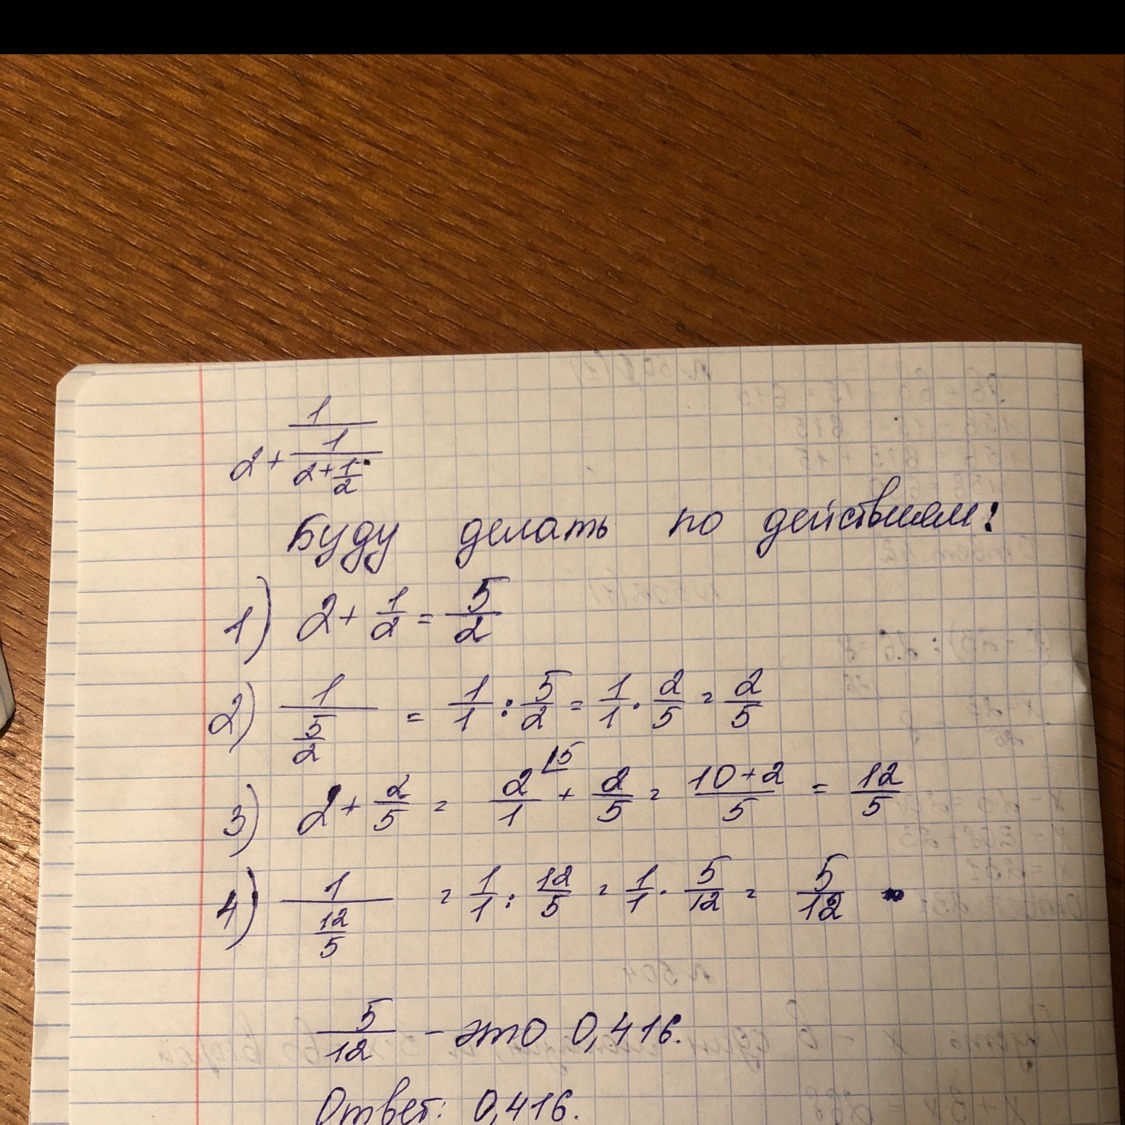 1
2 + 1
2 + 1
2
Буду делать по действиям:
1) 2 + 1/2 = 5/2
2) 1/(5/2) = 1/1 : 5/2 = 1/1 · 2/5 = 2/5
3) 2 + 2/5 = 2/1 |5 + 2/5 = (10+2)/5 = 12/5
4) 1/(12/5) = 1/1 : 12/5 = 1/1 · 5/12 = 5/12
5/12 - это 0,416.
Ответ: 0,416.